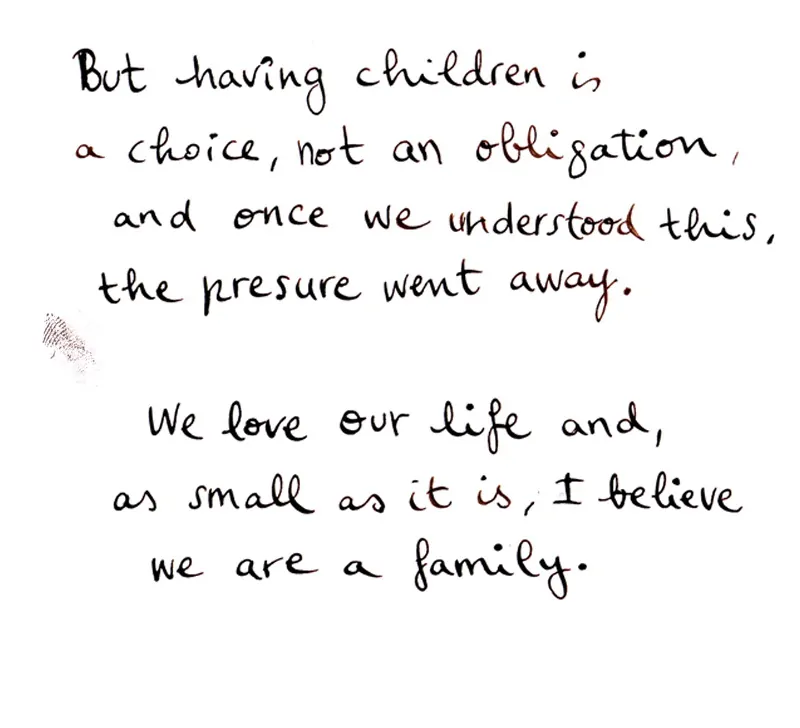 But having children is
a choice, not an obligation,
and once we understood this,
the presure went away.
We love our life and,
as small as it is, I believe
we are a family.